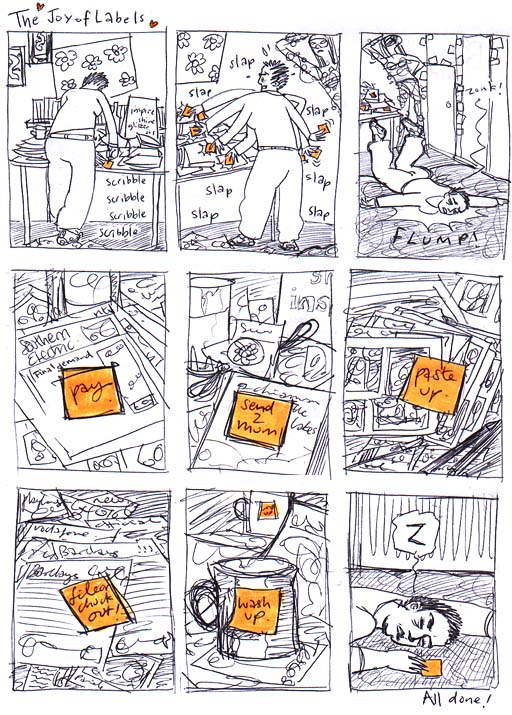 The Joy of Labels
inspire
shine
glitter
scribble
scribble
scribble
scribble
slap
slap
slap
slap
slap
slap
slap
slap
zonk!
FLUMP!
Southern
Electric
Final demand
pay
send
2
mum
paste
up
news
vodafone
Barclays
Barclays
file or
chuck
out!
wash
up
Z
All done!